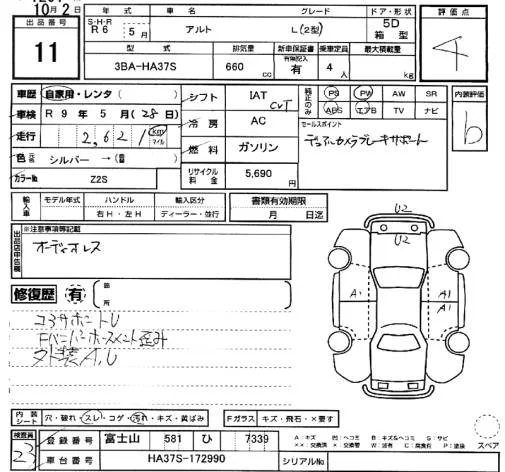 10月2日
出品番号
11
年式
車名
グレード
ドア・形状
S・H・R
R6 5月
アルト
L(2型)
5D
箱型
評価点
4
型式
排気量
新車保証書
有無記入
乗車定員
最大積載量
3BA-HA37S
660 cc
有
4 人
kg
車歴 自家用・レンタ ( )
シフト
IAT
CVT
純正のみ
PS PW AW SR
ABS エアB TV ナビ
内装評価
b
車検 R 9年 5月 (28日)
冷房
AC
セールスポイント
デュアルカメラブレーキサポート
走行 2,621 km
マイル
燃料
ガソリン
色 元色 シルバー →( )
リサイクル料金
5,690
カラーNo.
Z2S
輸入車
モデル年式
ハンドル
輸入区分
右H・左H
ディーラー・並行
書類有効期限
月 日迄
出品店申告欄
※注意事項等記載
オーディオレス
修復歴 有
箇所
コアサポートU
外装A,U
U2
U2
A1
A1
A1
内装シート
穴・破れ・スレ・コゲ・汚れ・キズ・黄ばみ
Fガラス
キズ・飛石・×要す
検査員
23
登録番号
富士山 581 ひ 7339
車台番号
HA37S-172990
シリアルNo.
A:キズ U:ヘコミ B:キズ&ヘコミ S:サビ
××:交換済 ×:交換要 W:波有 C:腐食有 P:塗装
スペア